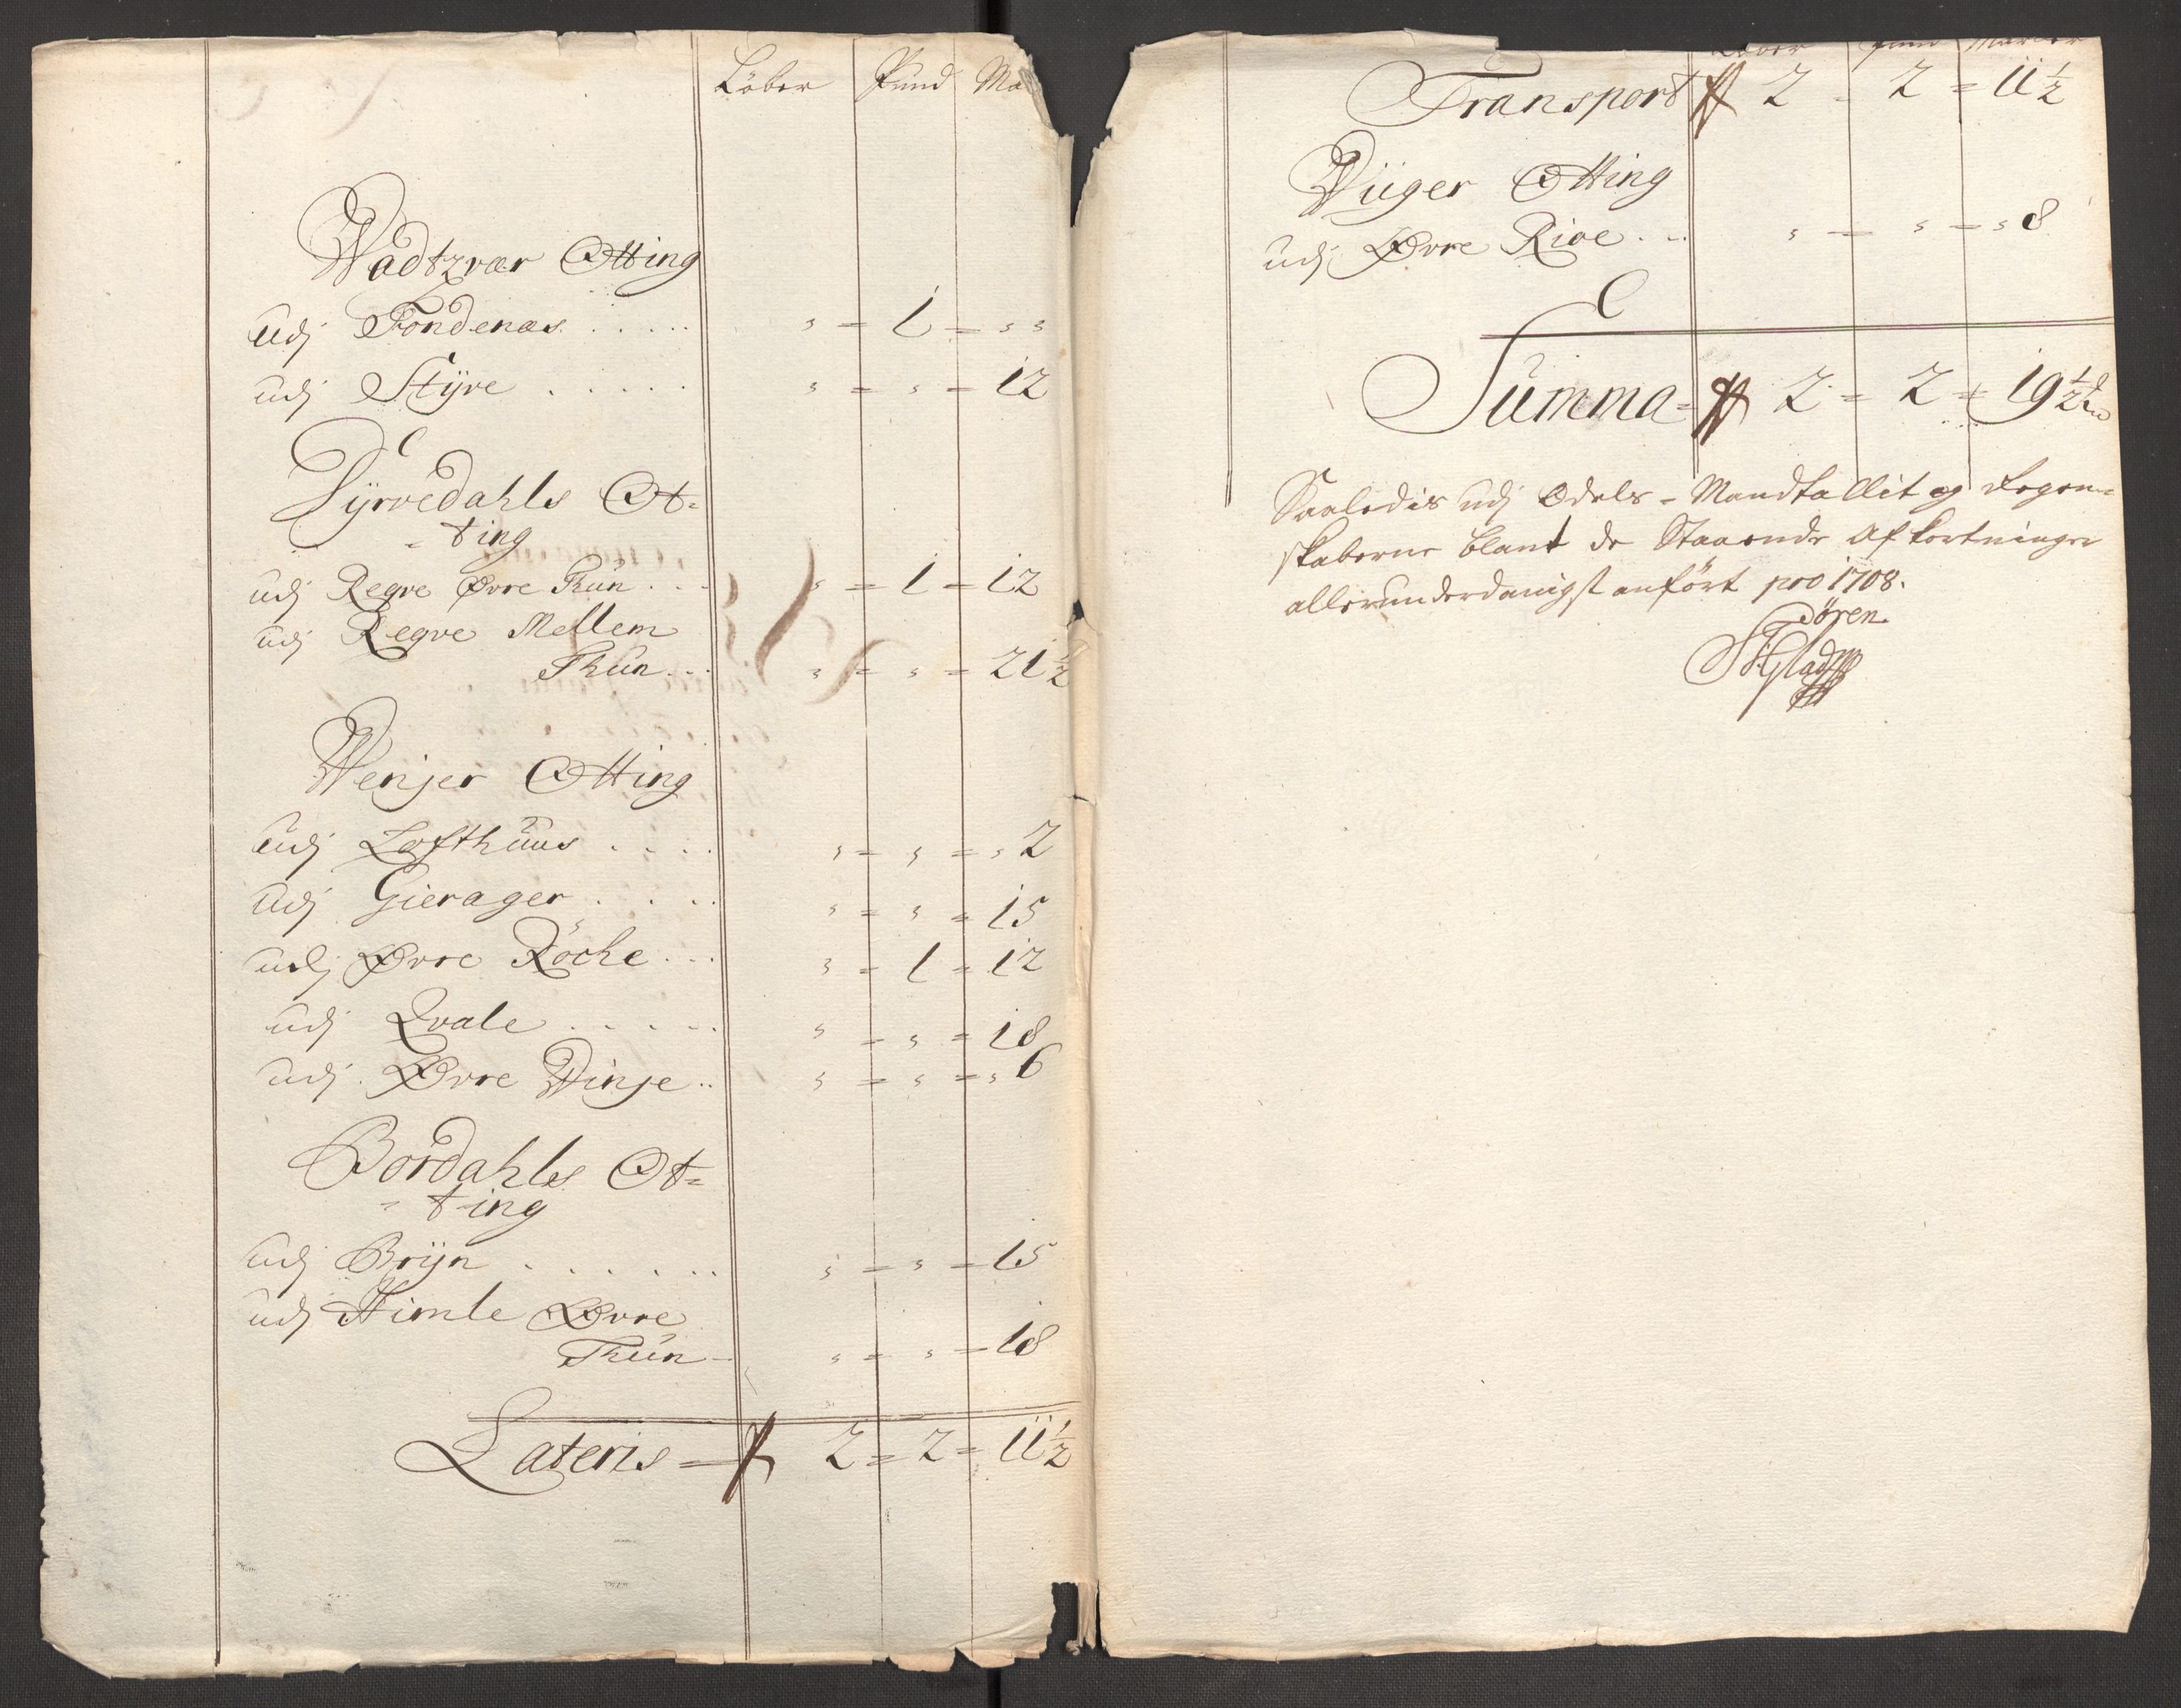 Löber Pund Ma
Wadtzvær Otting
Udj Fondenæs . . . . . " = 1 = " "
udj Styre . . . . . " = " = 12
Dyrvedahls Ot=
=ting
udj Regve Øvre Thun . . . " = 1 = 12
udj Regve Mellem
Thun . . " = " = 21½
Wenjer Otting
Udj Lofthuus . . . . " = " = " 2
Udj Gierager . . . . " = " = 15
udj Øvre Röche . . . " = 1 = 12
udj Qvale . . . . . " = " = 18
udj Øvre Winje . . " = " = " 6
Bordahls Ot=
=ting
Udj Bryn . . . . . . " = " = 15
udj Himle Øvre
Thun " = " = 18
Lateris = 2 = 2 = 11½
Löber Pund Marker
Transport 2 = 2 = 11½
Wiiger Otting
udj Øvre Rioe . . . " = " = " 8
Summa = 2 = 2 = 19½
Saaledis udj Odels = Mandtallit og Regen=
skaberne blant de Staaende Afkortninger
allerunderdanigst anført pro 1708.
Sören